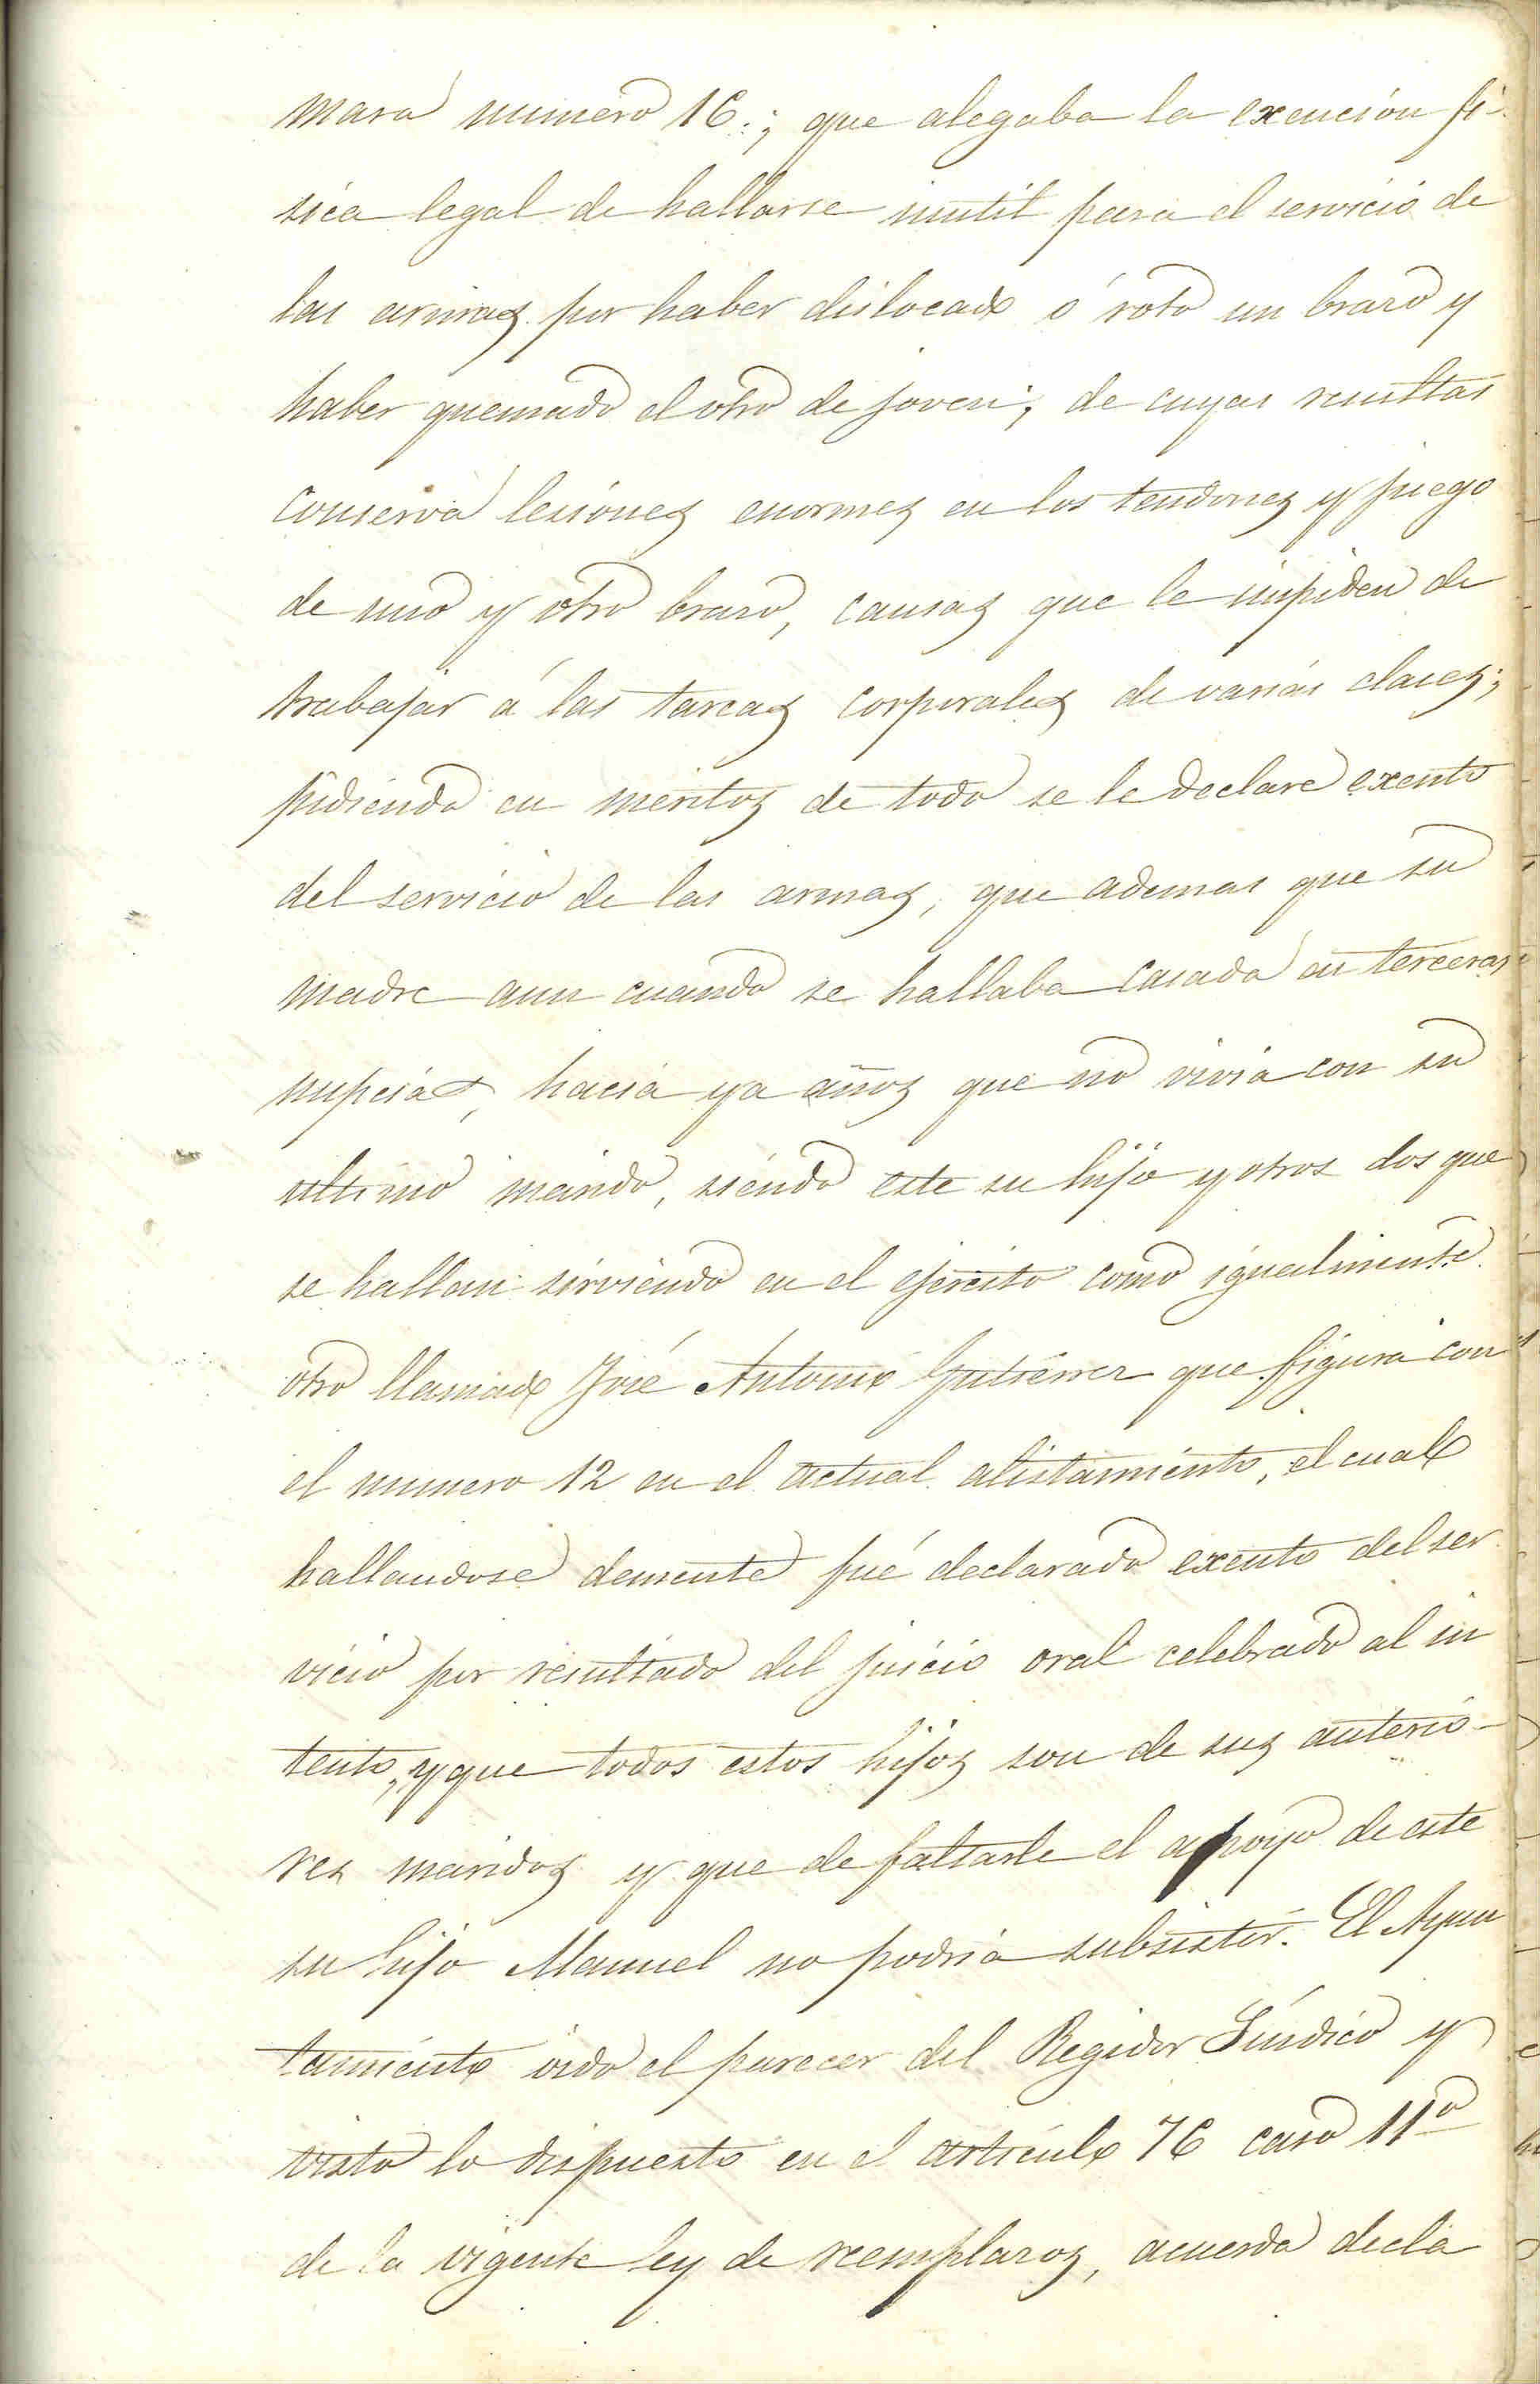 mara numero 16.; que alegaba la exencion fi-
sica legal de hallarse inutil para el servicio de
las armas por haber dislocado ó roto un brazo y
haber quemado el otro de joven; de cuyas resultas
conserva lesiones enormes en los tendones y juego
de uno y otro brazo, causas que le impiden de
trabajar á las tareas corporales de varias clases;
pidiendo en méritos de todo se le declare exento
del servicio de las armas, que ademas que su
madre aun cuando se hallaba casada en terceras
nupcias, hacia ya años que no vivia con su
ultimo marido, siendo este su hijo y otros dos que
se hallan sirviendo en el ejercito como igualmente
otro llamado José Antonio Gutierrez que figura con
el numero 12 en el actual alistamiento, el cual
hallandose demente fué declarado exento del ser
vicio por resultado del juicio oral celebrado al in
tento, y que todos estos hijos son de sus anterio-
res maridos y que de faltarle el apoyo de este
su hijo Manuel no podria subsistir. El Ayun
tamiento oido el parecer del Regidor Síndico y
visto lo dispuesto en el articulo 76 caso 11º
de la vigente ley de remplazos, acuerda decla